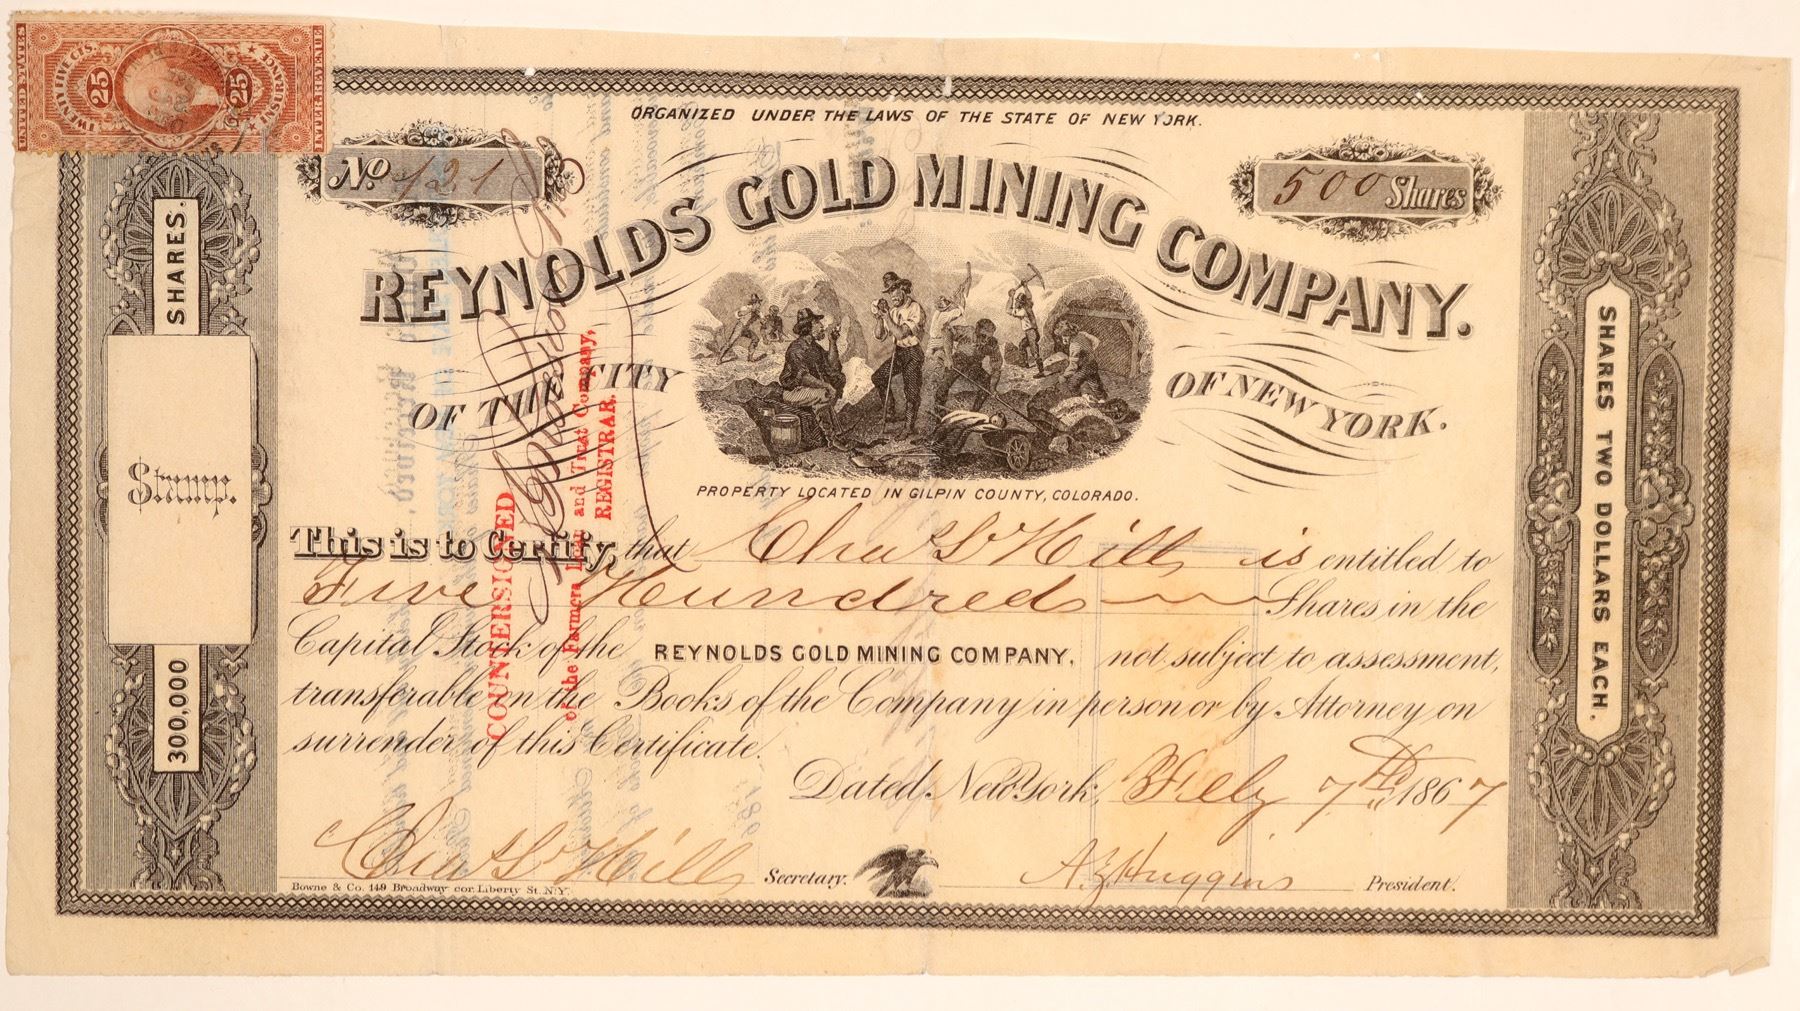 UNITED STATES
TWENTY FIVE CTS.
25
25
INSURANCE
INTER. REVENUE
ORGANIZED UNDER THE LAWS OF THE STATE OF NEW YORK.
No. 121
500 Shares
REYNOLDS GOLD MINING COMPANY.
OF THE CITY OF NEW YORK.
PROPERTY LOCATED IN GILPIN COUNTY, COLORADO.
This is to Certify, that Chas S Hill is entitled to
Five Hundred Shares in the
Capital Stock of the REYNOLDS GOLD MINING COMPANY, not subject to assessment,
transferable on the Books of the Company in person or by Attorney on
surrender of this Certificate.
Dated, New York, Feby 7th 1867
Chas S Hill Secretary.
A. Z. Huggins President.
Bowne & Co. 149 Broadway cor. Liberty St. N.Y.
SHARES.
Stamp.
300,000
SHARES TWO DOLLARS EACH.
COUNTERSIGNED
of the Farmers Loan and Trust Company,
REGISTRAR.